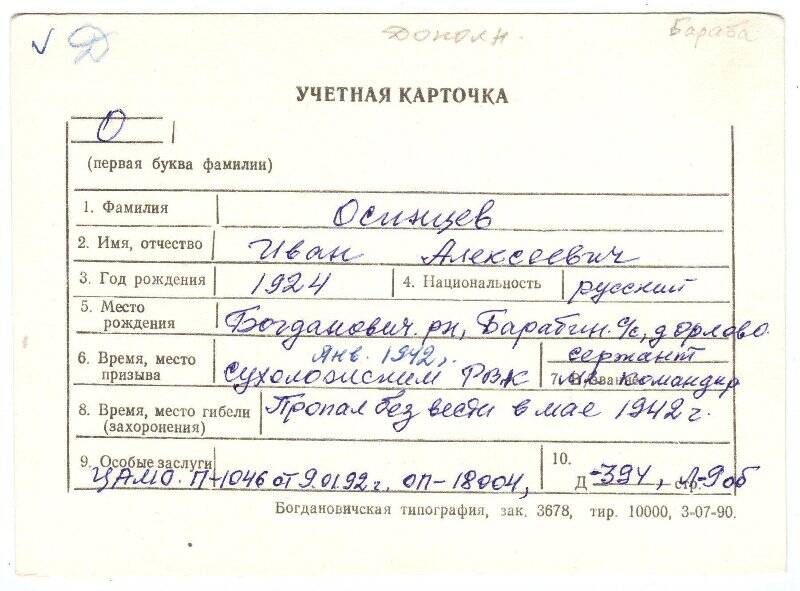 √ Д Дополн. Бараба
УЧЕТНАЯ КАРТОЧКА
О
(первая буква фамилии)
1. Фамилия Осинцев
2. Имя, отчество Иван Алексеевич
3. Год рождения 1924 4. Национальность русский
5. Место рождения Богданович. рн, Барабин. с/с, д Орлово
6. Время, место призыва Янв. 1942г. Сухоложским РВК
7. Звание сержант командир
8. Время, место гибели (захоронения) Пропал без вести в мае 1942 г.
9. Особые заслуги ЦАМО. П-1046 от 9.01.92 г. оп-18004,
10. Д -394, стр. Л-9об
Богдановичская типография, зак. 3678, тир. 10000, 3-07-90.